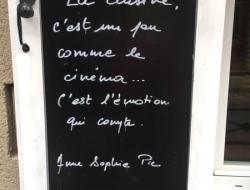 La cuisine,
c'est un peu
comme le
cinéma...
C'est l'émotion
qui compte.
Anne Sophie Pic